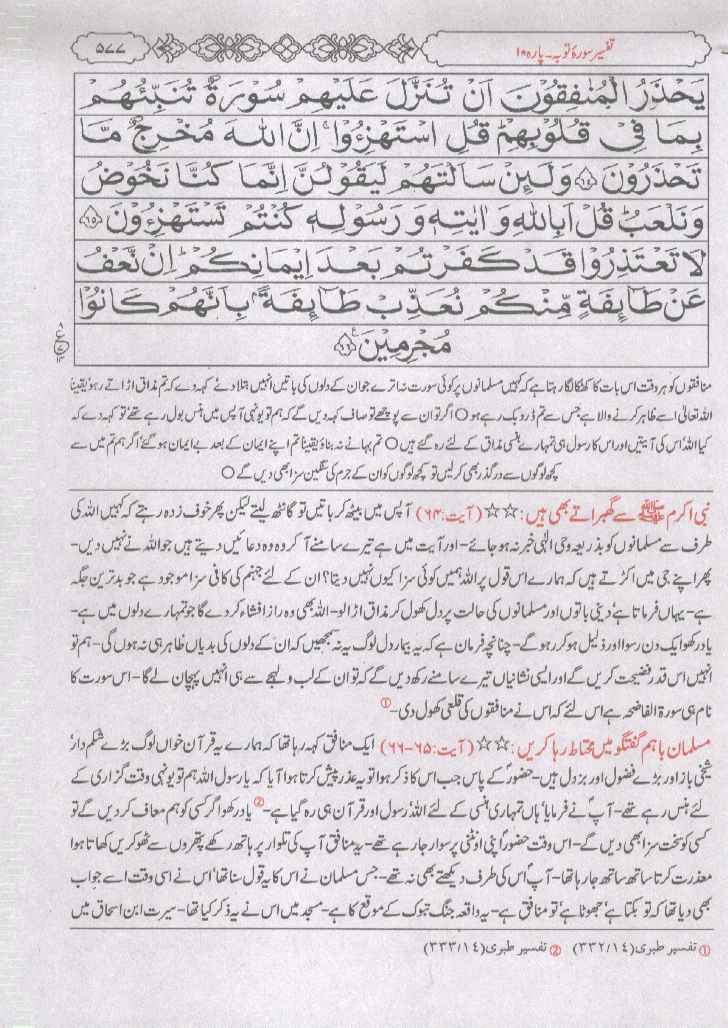 تفسیر سورۂ توبہ۔ پارہ ۱۰
۵۷۷
يَحْذَرُ الْمُنٰفِقُوْنَ اَنْ تُنَزَّلَ عَلَيْهِمْ سُوْرَةٌ تُنَبِّئُهُمْ
بِمَا فِيْ قُلُوْبِهِمْ ؕ قُلِ اسْتَهْزِءُوْا ۚ اِنَّ اللّٰهَ مُخْرِجٌ مَّا
تَحْذَرُوْنَ ﴿۶۴﴾ وَلَىِٕنْ سَاَلْتَهُمْ لَيَقُوْلُنَّ اِنَّمَا كُنَّا نَخُوْضُ
وَنَلْعَبُ ؕ قُلْ اَبِاللّٰهِ وَاٰيٰتِهٖ وَرَسُوْلِهٖ كُنْتُمْ تَسْتَهْزِءُوْنَ ﴿۶۵﴾
لَا تَعْتَذِرُوْا قَدْ كَفَرْتُمْ بَعْدَ اِيْمَانِكُمْ ؕ اِنْ نَّعْفُ
عَنْ طَآىِٕفَةٍ مِّنْكُمْ نُعَذِّبْ طَآىِٕفَةًۢ بِاَنَّهُمْ كَانُوْا
مُجْرِمِيْنَ ﴿۶۶﴾
منافقوں کو ہر وقت اس بات کا کھٹکا لگا رہتا ہے کہ کہیں مسلمانوں پر کوئی سورت نہ اترے جو ان کے دلوں کی باتیں انہیں بتلا دے‘ کہہ دے کہ تم مذاق اڑاتے رہو‘ یقیناً
اللہ تعالیٰ اسے ظاہر کرنے والا ہے جس سے تم ڈر دبک رہے ہو ○ اگر تو ان سے پوچھے تو صاف کہہ دیں گے کہ ہم تو یونہی آپس میں ہنس بول رہے تھے‘ تو کہہ دے کہ
کیا اللہ‘ اس کی آیتیں اور اس کا رسول ہی تمہارے ہنسی مذاق کے لئے رہ گئے ہیں ○ تم بہانے نہ بناؤ یقیناً تم اپنے ایمان کے بعد بے ایمان ہو گئے‘ اگر ہم تم میں سے
کچھ لوگوں سے درگذر بھی کر لیں تو کچھ لوگوں کو ان کے جرم کی سنگین سزا بھی دیں گے ○
نبی اکرم ﷺ سے گھبراتے بھی ہیں: ☆☆ (آیت:۶۴) آپس میں بیٹھ کر باتیں تو گانٹھ لیتے لیکن پھر خوف زدہ رہتے کہ کہیں اللہ کی
طرف سے مسلمانوں کو بذریعہ وحی الٰہی خبر نہ ہو جائے۔ اور آیت میں ہے تیرے سامنے آ کر وہ وہ دعائیں دیتے ہیں جو اللہ نے نہیں دیں۔
پھر اپنے جی میں اکڑتے ہیں کہ ہمارے اس قول پر اللہ ہمیں کوئی سزا کیوں نہیں دیتا؟ ان کے لئے جہنم کی کافی سزا موجود ہے جو بدترین جگہ
ہے۔ یہاں فرماتا ہے‘ دینی باتوں اور مسلمانوں کی حالت پر دل کھول کر مذاق اڑا لو۔ اللہ بھی وہ راز افشاء کر دے گا جو تمہارے دلوں میں ہے۔
یاد رکھو ایک دن رسوا اور ذلیل ہو کر رہو گے۔ چنانچہ فرمان ہے کہ یہ بیمار دل لوگ یہ نہ سمجھیں کہ ان کے دلوں کی بدیاں ظاہر ہی نہ ہوں گی۔ ہم تو
انہیں اس قدر فضیحت کریں گے اور ایسی نشانیاں تیرے سامنے رکھ دیں گے کہ تو ان کے لب و لہجے سے ہی انہیں پہچان لے گا۔ اس سورت کا
نام ہی سورۃ الفاضحہ ہے اس لئے کہ اس نے منافقوں کی قلعی کھول دی۔①
مسلمان باہم گفتگو میں محتاط رہا کریں: ☆☆ (آیت:۶۵-۶۶) ایک منافق کہہ رہا تھا کہ ہمارے یہ قرآن خواں لوگ بڑے شکم دار‘
شیخی باز اور بڑے فضول اور بزدل ہیں۔ حضورؐ کے پاس جب اس کا ذکر ہوا تو یہ عذر پیش کرتا ہوا آیا کہ یا رسول اللہ ہم تو یونہی وقت گزاری کے
لئے ہنس رہے تھے۔ آپؐ نے فرمایا ‘ہاں تمہاری ہنسی کے لئے اللہ‘ رسول اور قرآن ہی رہ گیا ہے۔② یاد رکھو اگر کسی کو ہم معاف کر دیں گے تو
کسی کو سخت سزا بھی دیں گے۔ اس وقت حضورؐ اپنی اونٹنی پر سوار جا رہے تھے۔ یہ منافق آپ کی تلوار پر ہاتھ رکھے پتھروں سے ٹھوکریں کھاتا ہوا
معذرت کرتا ساتھ ساتھ جا رہا تھا۔ آپؐ اس کی طرف دیکھتے بھی نہ تھے۔ جس مسلمان نے اس کا یہ قول سنا تھا‘ اس نے اسی وقت اسے جواب
بھی دیا تھا کہ تو بکتا ہے‘ جھوٹا ہے‘ تو منافق ہے۔ یہ واقعہ جنگ تبوک کے موقع کا ہے۔ مسجد میں اس نے یہ ذکر کیا تھا۔ سیرت ابن اسحاق میں
① تفسیر طبری (۳۳۲/۱۴) ② تفسیر طبری (۳۳۳/۱۴)